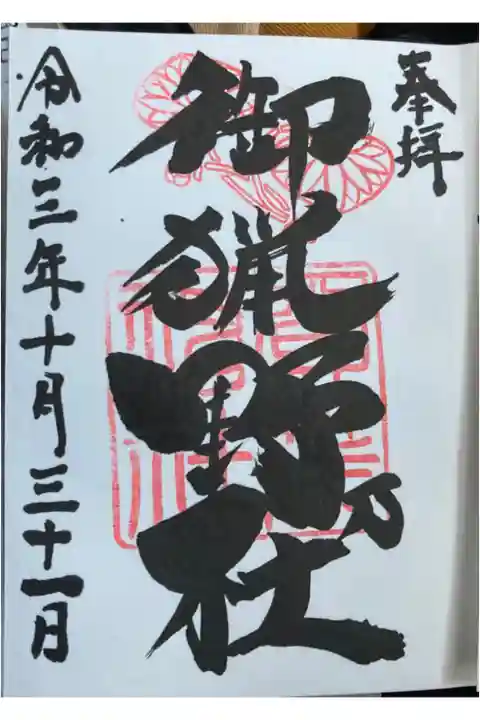 奉拝
御猟野乃社
令和三年十月三十一日